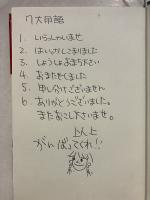 7大用語
1. いらっしゃいませ
2. はい、かしこまりました
3. しょうしょうおまち下さい
4. おまたせしました
5. 申し分けございません
6. ありがとうございました。
またおこし下さいませ。
がんばってくれ!!